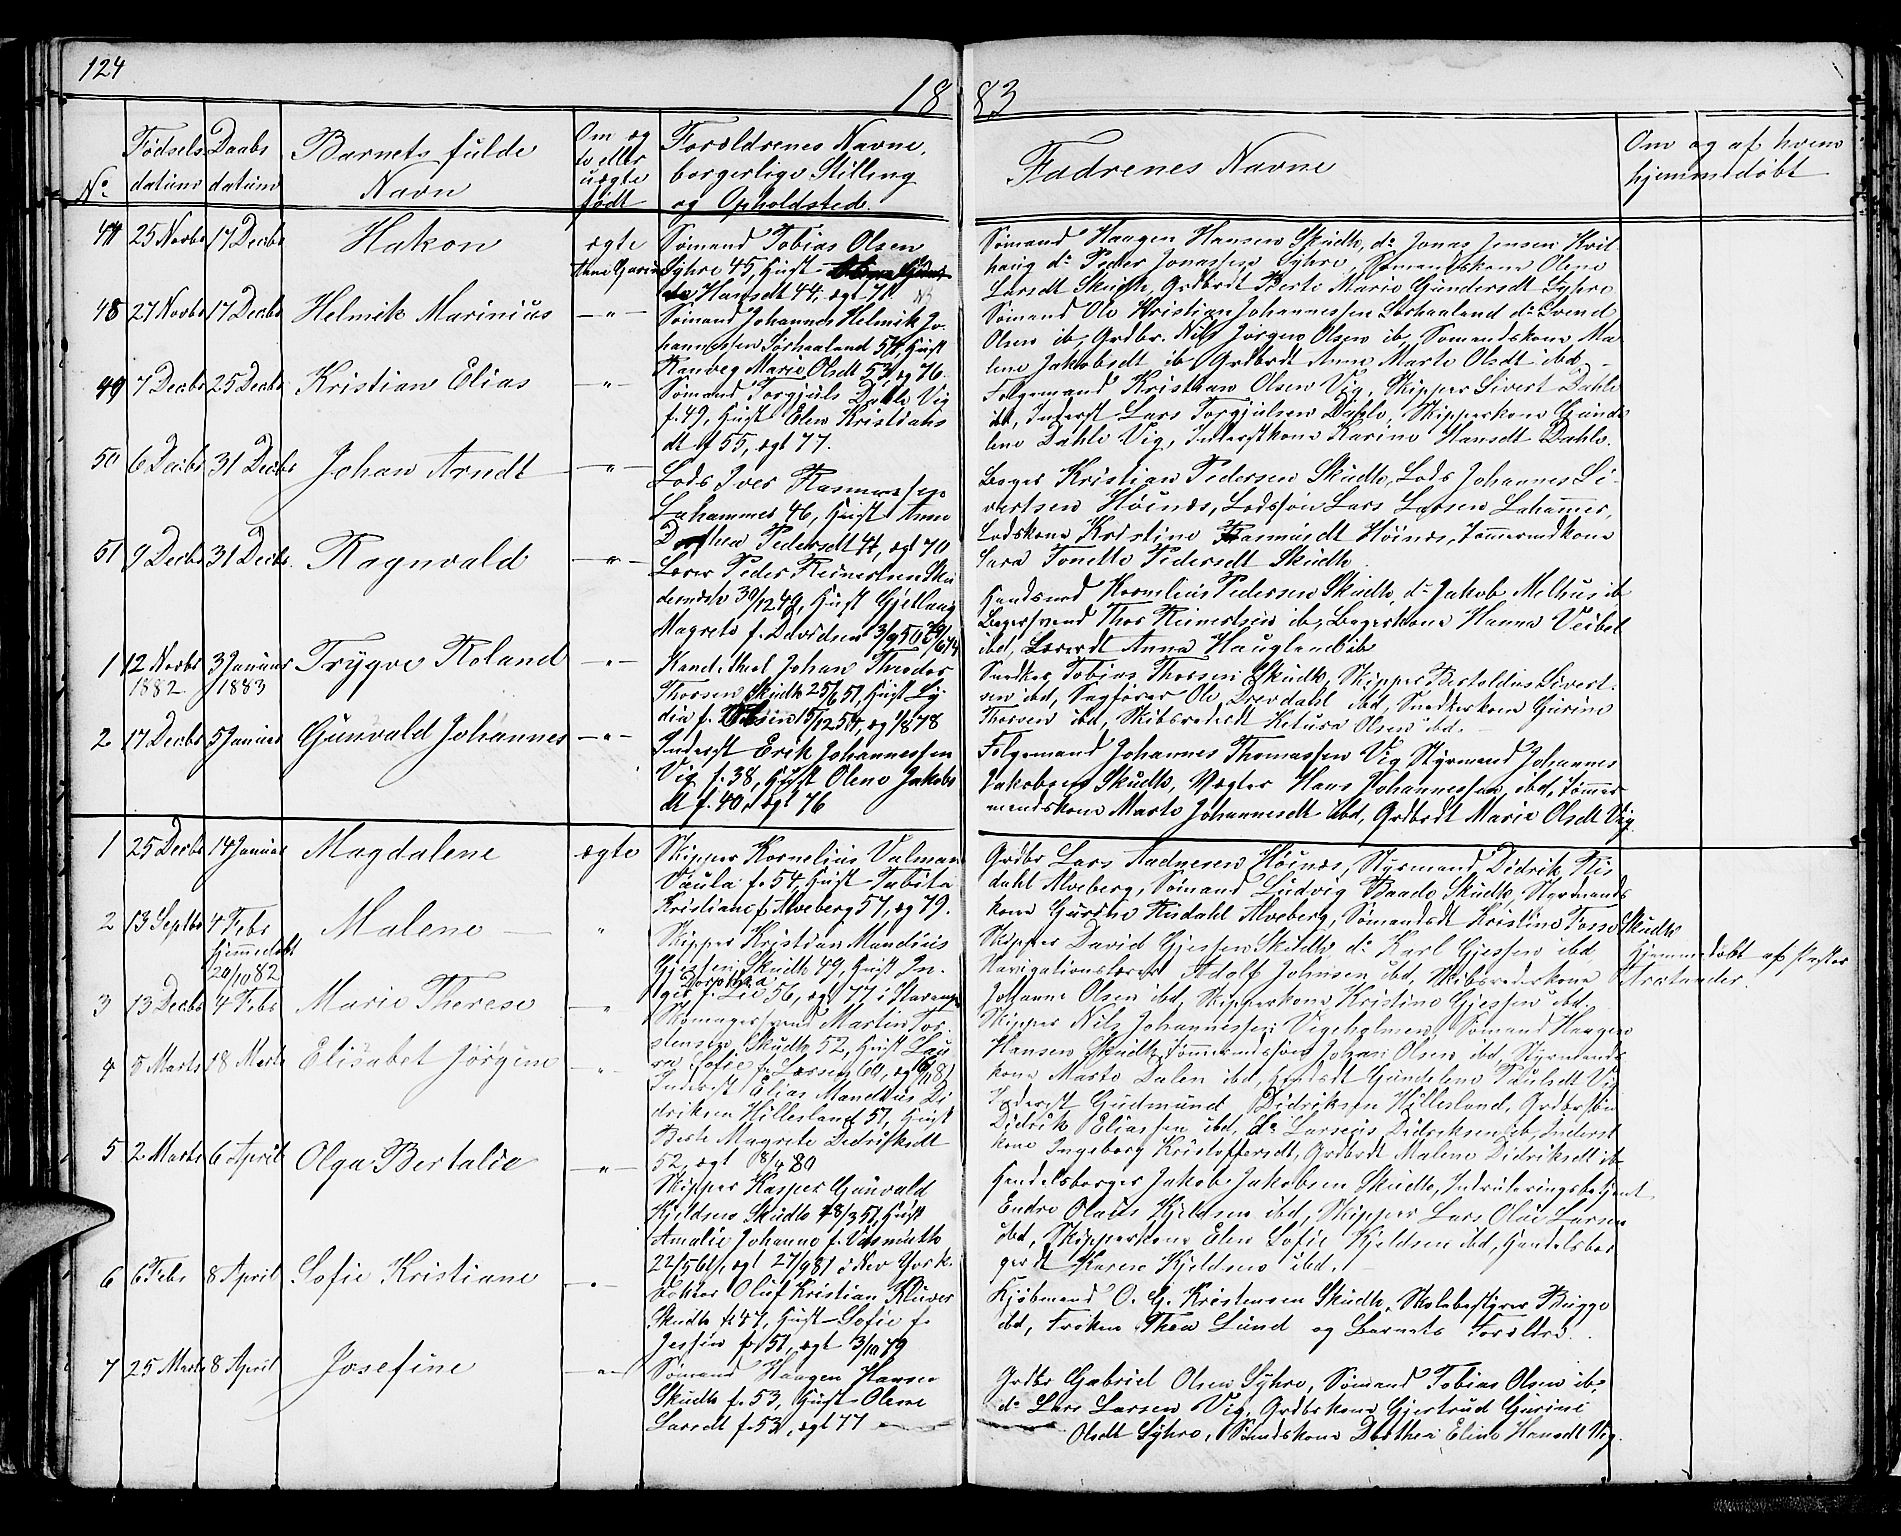 124
18 83
No. Fødsels datum Daabs datum Barnets fulde Navn Om ægte eller uægte født Forældrenes Navne, borgerlige Stilling og Opholdsted. Fadrenes Navne Om og af hvem hjemmedøbt
47 25 Novbr 17 Decbr Hakon ægte
Sømand Tobias Olsen
Syhre 45, Hust
Anne Gurine
Hansdt 44, ægt 71
Sømand Haagen Hansen Skudh, do Jonas Jensen Kvil
haug do Peder Jonassen Syhre, Sømandskone Olene
Larsdt Skudh, Grdbrdt Berte Marie Gundersdt Syhre
48 27 Novbr 17 Decbr Helmik Marinius –"–
Sømand Johannes Helmik Jo-
hannessen Sørhaaland 54, Hust
Ranveg Marie Olsdt 53, æg 76.
Sømand Ole Kristian Johannessen Sørhaaland do Svend
Olsen ib, Grdbr. Nils Jørgen Olsen ib, Sømandskone Ma-
lene Jakobsdt ib, Grdbrdt Anne Marte Olsdt ibd.
49 7 Decbr 25 Decbr Kristian Elias –"–
Sømand Torgjuls Dahle Vig
f. 49, Hust Elen Kristians
dt f 55, ægt 77.
Følgemand Kristian Olsen Vig, Skipper Sivert Dahle
ibd, Inderst Lars Torgjulsen Dahle, Skipperkone Gunde
lene Dahle Vig, Inderstkone Karine Hansdt Dahle.
50 6 Decbr 31 Decbr Johan Arndt –"–
Lods Iver Rasmussen
Lahammer 46, Hust Anne
Dorthea Pedersdt 47, ægt 70
Bager Kristian Pedersen Skudh, Lods Johannes Si-
vertsen Høines, Lodssøn Lars Larsen Lahammer,
Lodskone Kristine Rasmusdt Høines, Tømmermdkone
Sara Tonette Pedersdt Skudh
51 9 Decbr 31 Decbr. Ragnvald –"–
Lærer Peder Reinertsen Sku
desnæsh 30/12 49, Hust Gjellaug
Magrete f. Davidsen 3/9 50
Handsmd Kornelius Pedersen Skudh, do Jakob Melhus ib
Bagersvend Thor Reinertsen ib, Bagerkone Hanna Veibel
ibd, Lærerdt Anna Haugland ib
1 12 Novbr 1882. 3 Januar 1883 Trygve Roland –"–
Kand. theol Johan Theodor
Thorsen Skudh 25/6 51, Hust Ly-
dia f. 15/12 54, æg 1/8 78
Snedker Tobias Thorsen Skudh, Skipper Bertoldus Sivert-
sen ibd, Sagfører Ole Drevdahl ibd, Snedkerkone Gurine
Thorsen ibd, Skibsrederdt Ketura Olsen ibd.
2 17 Decbr 5 Januar Gunvald Johannes –"–
Inderst Erik Johannessen
Vig f. 38, Hust Olene Jakobs
dt f. 40, ægt 76
Følgemand Johannes Thomassen Vig, Styrmand Johannes
Jakobsen Skudh, Vægter Hans Johannessen, ibd, Tømmer-
mandskone Marte Johannesdt ibd, Grdbrdt Marie Olsdt Vig.
1 25 Decbr 14 Januar Magdalene ægte
Skipper Kornelius Valman
Vaula f. 54, Hust Tabita
Kristiane f. Alveberg 57, æg 79.
Grdbr Lars Aadnesen Høines, Styrmand Didrik Ris
dahl Alveberg, Sømand Ludvig Baade Skudh, Styrmands
kone Gurine Risdahl Alveberg, Sømandsdt Kristine Fosse Skudh
2 13 Septbr 4 Febr hjemmedøbt 20/10 82 Malene "
Skipper Kristian Mandius
Gjessen Skudh 49, Hust In-
ger Dorothea f. Lie 56, ægt 77 i Stavanger
Skipper David Gjessen Skudh, do Karl Gjessen ibd
Navigationslærer Adolf Johnsen ibd, Skibsrederkone
Johanne Olsen ibd, Skipperkone Kristine Gjessen ibd.
Hjemmedøbt af Præsten
3 13 Decbr 4 Febr Marie Therese –"–
Skomagersvend Martin Tor-
stensen Skudh 52, Hust Lau
ra Sofie f. Larsen 60, æg
Skipper Nils Johannessen Vigeholmen, Sømand Haagen
Hansen Skudh, Tømmermdssøn Johan Olsen ibd, Styrmands
kone Marte Dalen ibd, Handsdt Gundelene Paulsdt Vig
4 5 Marts 18 Marts Elisabet Jørgine –"–
Inderst Elias Mandius Di
driksen Hillesland 51, Hust
Berte Magrete Didriksdt
52, ægt 18/4 80
Inderst Gudmund Didriksen Hillesland, Grdbrsøn
Didrik Eliassen ibd, do Larseus Didriksen ib, Inderst
kone Ingeborg Kristoffersdt, Grdbrdt Malene Didriksdt ib
5 2 Marts 6 April Olga Bertalie –"–
Skipper Kasper Gunvald
Kjeldsen Skudh 18/3 51, Hust
Amalie Johanne f. Vasmuth
22/5 61, ægt 27/9 81 i New York.
Handelsborger Jakob Jakobsen Skudh, Inruleringsbetjent
Endre Olaus Kjeldsen ibd, Skipper Lars Olai Larsen
ibd, Skipperkone Elen Sofie Kjeldsen ibd, Handelsbor
gerdt Karen Kjeldsen ibd.
6 6 Febr 8 April Sofie Kristiane –"–
Doktor Oluf Kristian Kluver
Skudh f. 47, Hust Sofie f.
Jessen f. 51, ægt 3/10 79
Kjøbmand O. G. Kristensen Skudh, Skolebestyrer Bugge
ibd, Frøken Thea Lund og Barnets Forældre.
7 25 Marts 8 April Josefine –"–
Sømand Haagen Hansen
Skudh f. 53, Hust Olene
Larsdt f. 53, ægt 77
Grdbr Gabriel Olsen Syhre, Sømand Tobias Olsen ib,
do Lars Larsen Vig, Grdbrkone Gjertrud Gurine
Olsdt Syhre, Sømdskone Dorthea Eline Hansdt Vig.